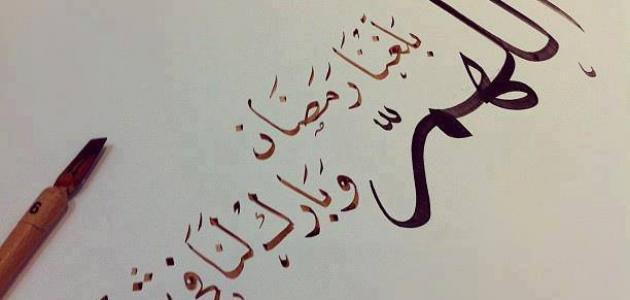 اللهمّ
بَلغْنَا رَمَضَان
وبَارِكْ لنَا في